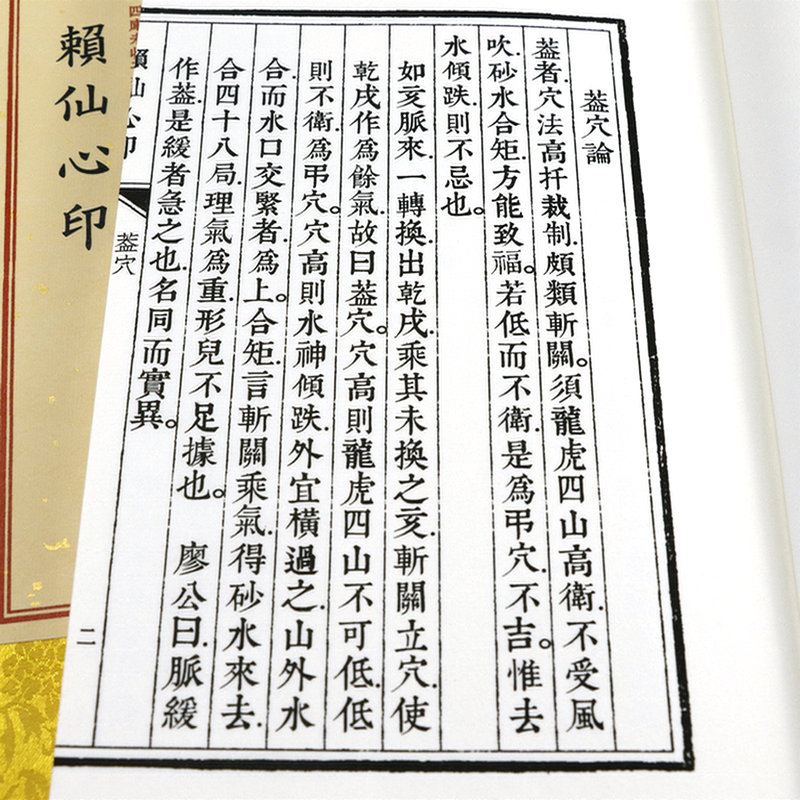 葢穴論
葢者.穴法高扦裁制.頗類斬關。須龍虎四山高衛.不受風
吹.砂水合矩.方能致福。若低而不衛.是爲弔穴.不吉。惟去
水傾跌.則不忌也。
如亥脈來.一轉換.出乾戌.乘其未換之亥.斬關立穴.使
乾戌作爲餘氣.故曰葢穴。穴高則龍虎四山不可低.低
則不衛.爲弔穴。穴高則水神傾跌.外宜橫過之.山外水
合.而水口交緊者爲上。合矩.言斬關乘氣.得砂水來去.
合四十八局.理氣爲重.形兒不足據也。 廖公曰.脈緩
作葢.是緩者急之也.名同而實異。
賴仙心印
葢穴
二
賴仙心印